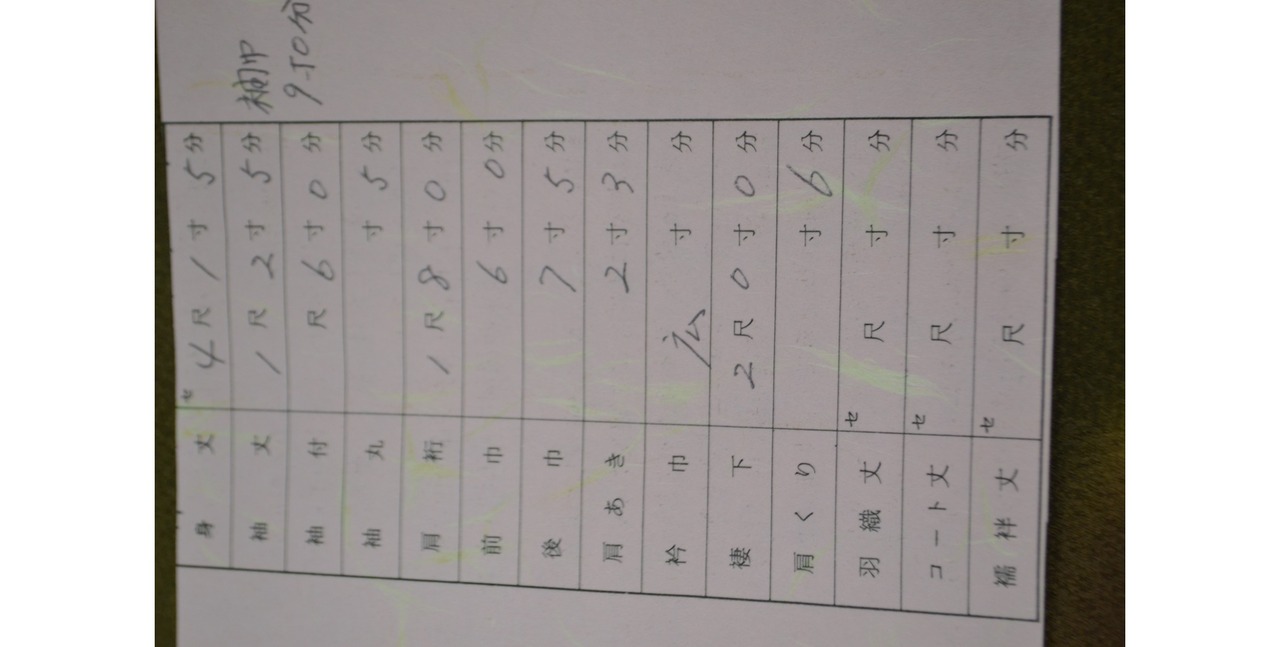 袖巾
9寸0分
身丈 セ 4尺1寸5分
袖丈 1尺2寸5分
袖付 尺6寸0分
袖丸 寸5分
肩裄 1尺8寸0分
前巾 6寸0分
後巾 7寸5分
肩あき 2寸3分
衿巾 広 寸 分
褄下 2尺0寸0分
肩くり 寸6分
羽織丈 セ 尺 寸 分
コート丈 セ 尺 寸 分
襦袢丈 セ 尺 寸 分